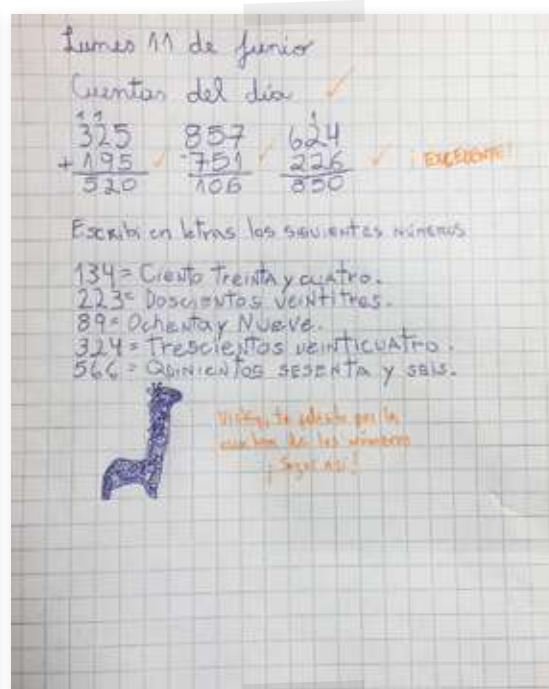 Lunes 11 de junio
Cuentas del día
1 1 1
325 857 624
+ 195 - 751 226
520 106 850
¡EXCELENTE!
Escribi en letras los siguientes números
134 = Ciento treinta y cuatro.
223 = Doscientos veintitres.
89 = Ochenta y Nueve.
324 = Trescientos veinticuatro.
566 = Quinientos sesenta y seis.
te por la
de los números
¡Seguí así!